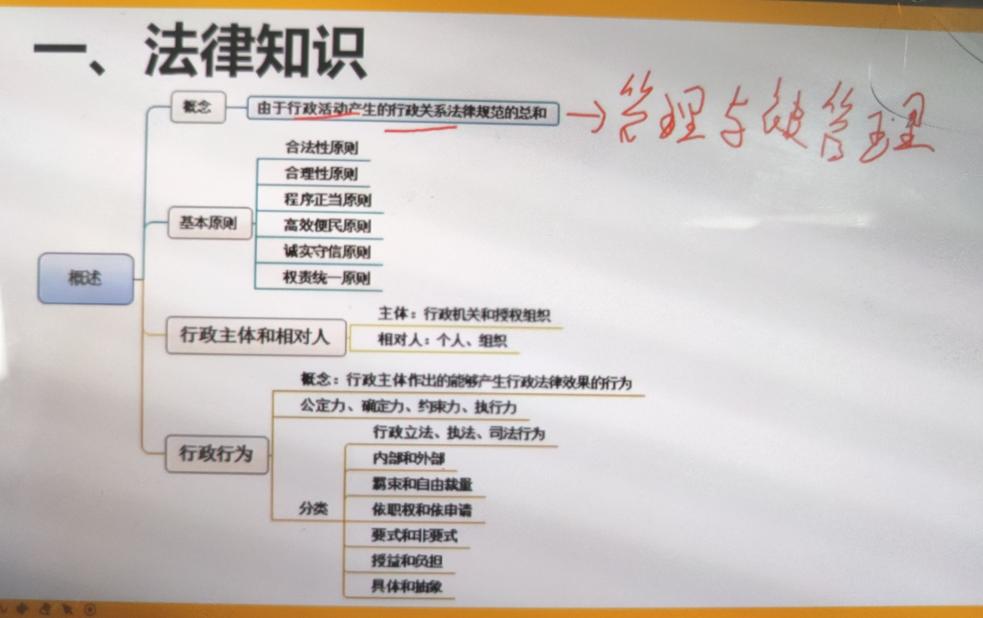 一、法律知识
概念
由于行政活动产生的行政关系法律规范的总和
→管理与被管理
概述
基本原则
合法性原则
合理性原则
程序正当原则
高效便民原则
诚实守信原则
权责统一原则
行政主体和相对人
主体：行政机关和授权组织
相对人：个人、组织
行政行为
概念：行政主体作出的能够产生行政法律效果的行为
公定力、确定力、约束力、执行力
分类
行政立法、执法、司法行为
内部和外部
羁束和自由裁量
依职权和依申请
要式和非要式
授益和负担
具体和抽象